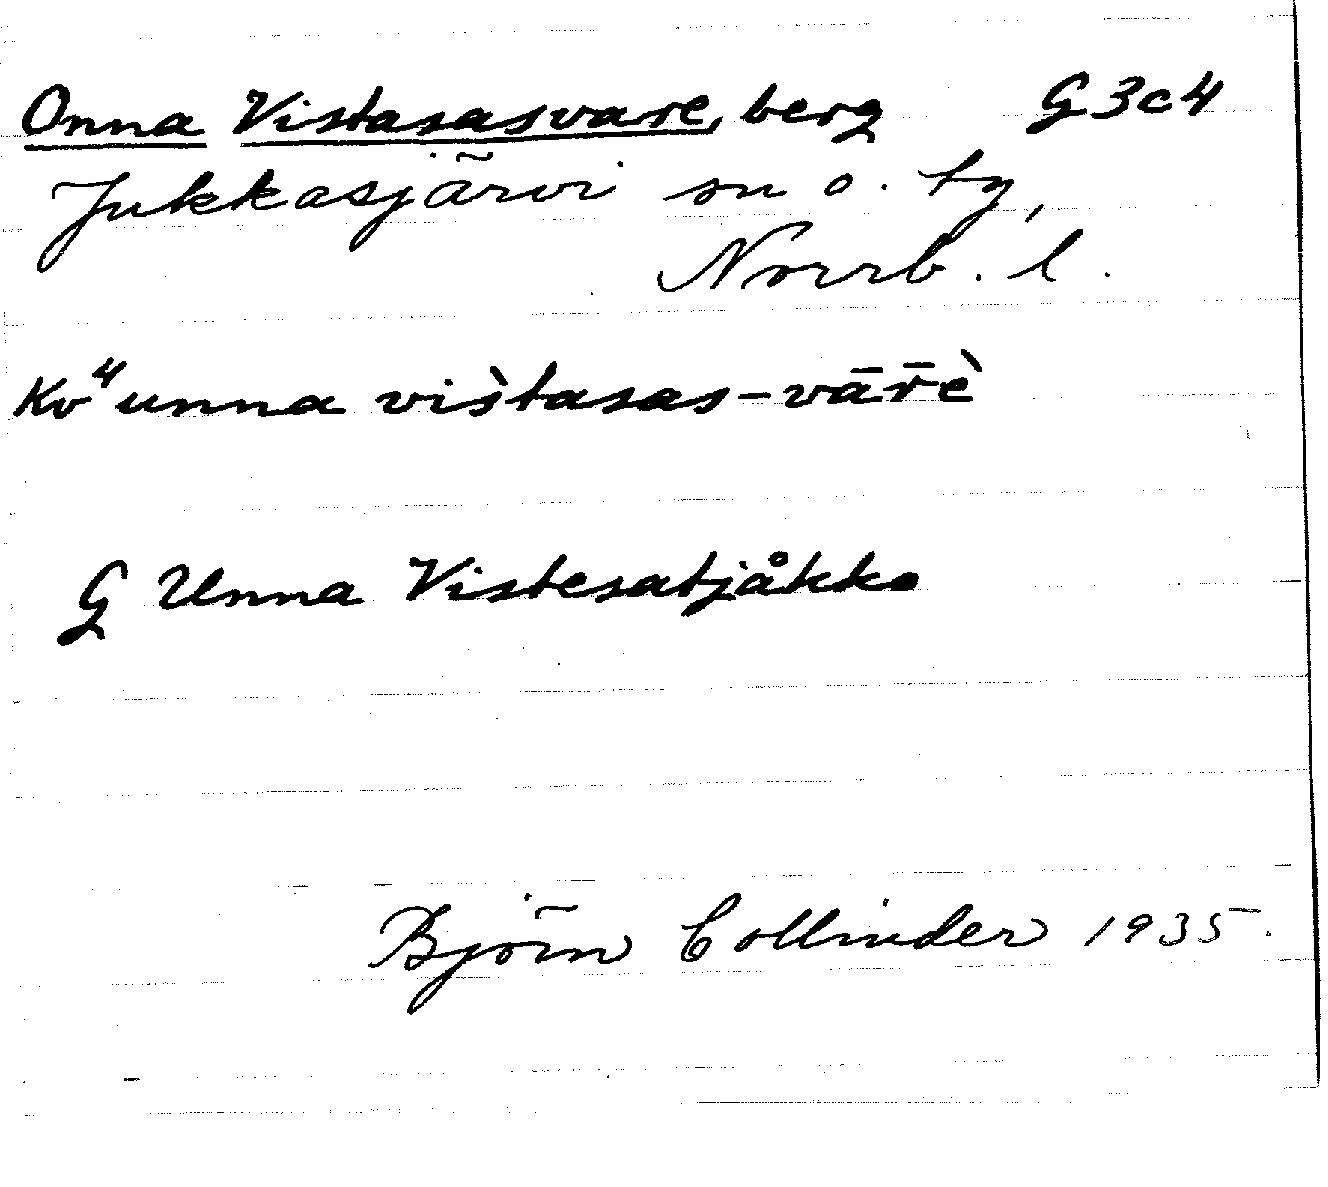 Onna Vistasasvare, berg G3c4
Jukkasjärvi sn o. tg,
Norrb. l.
Kv⁴ unna vis̀tasas-vār̄è
G Unna Vistesatjåkko
Björn Collinder 1935.